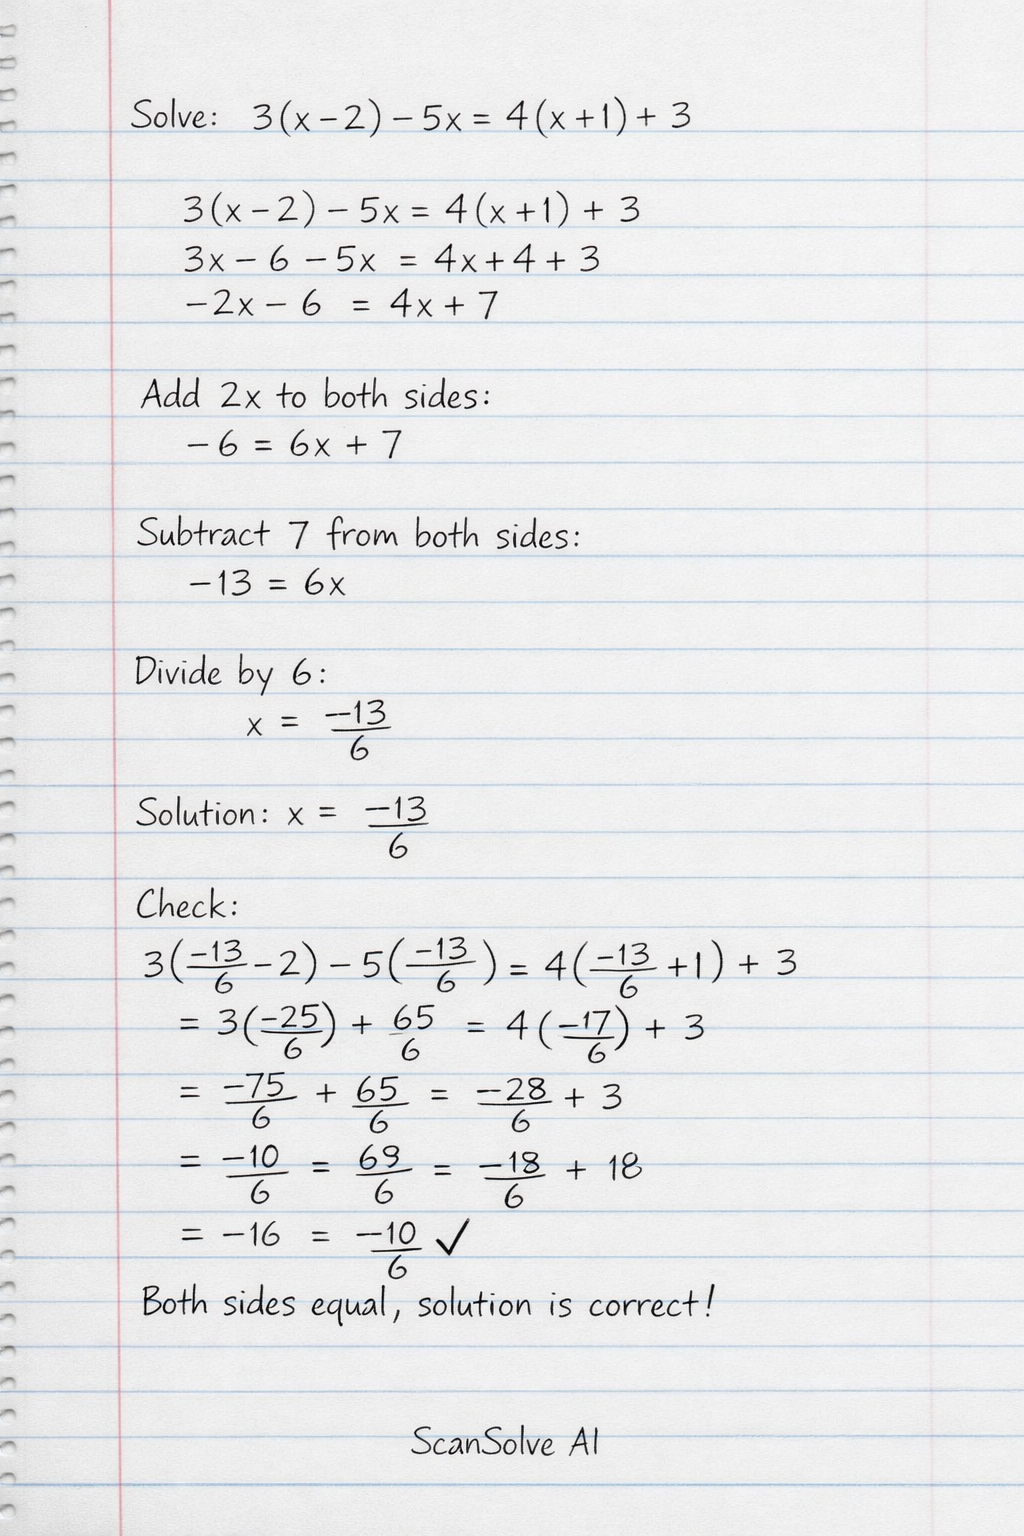 Solve: 3(x-2)-5x = 4(x+1)+3
3(x-2)-5x = 4(x+1)+3
3x-6-5x = 4x+4+3
-2x-6 = 4x+7
Add 2x to both sides:
-6 = 6x+7
Subtract 7 from both sides:
-13 = 6x
Divide by 6:
x = -13/6
Solution: x = -13/6
Check:
3(-13/6-2)-5(-13/6) = 4(-13/6+1)+3
= 3(-25/6) + 65/6 = 4(-17/6) + 3
= -75/6 + 65/6 = -28/6 + 3
= -10/6 = 69/6 = -18/6 + 18
= -16 = -10/6 ✓
Both sides equal, solution is correct!
ScanSolve AI